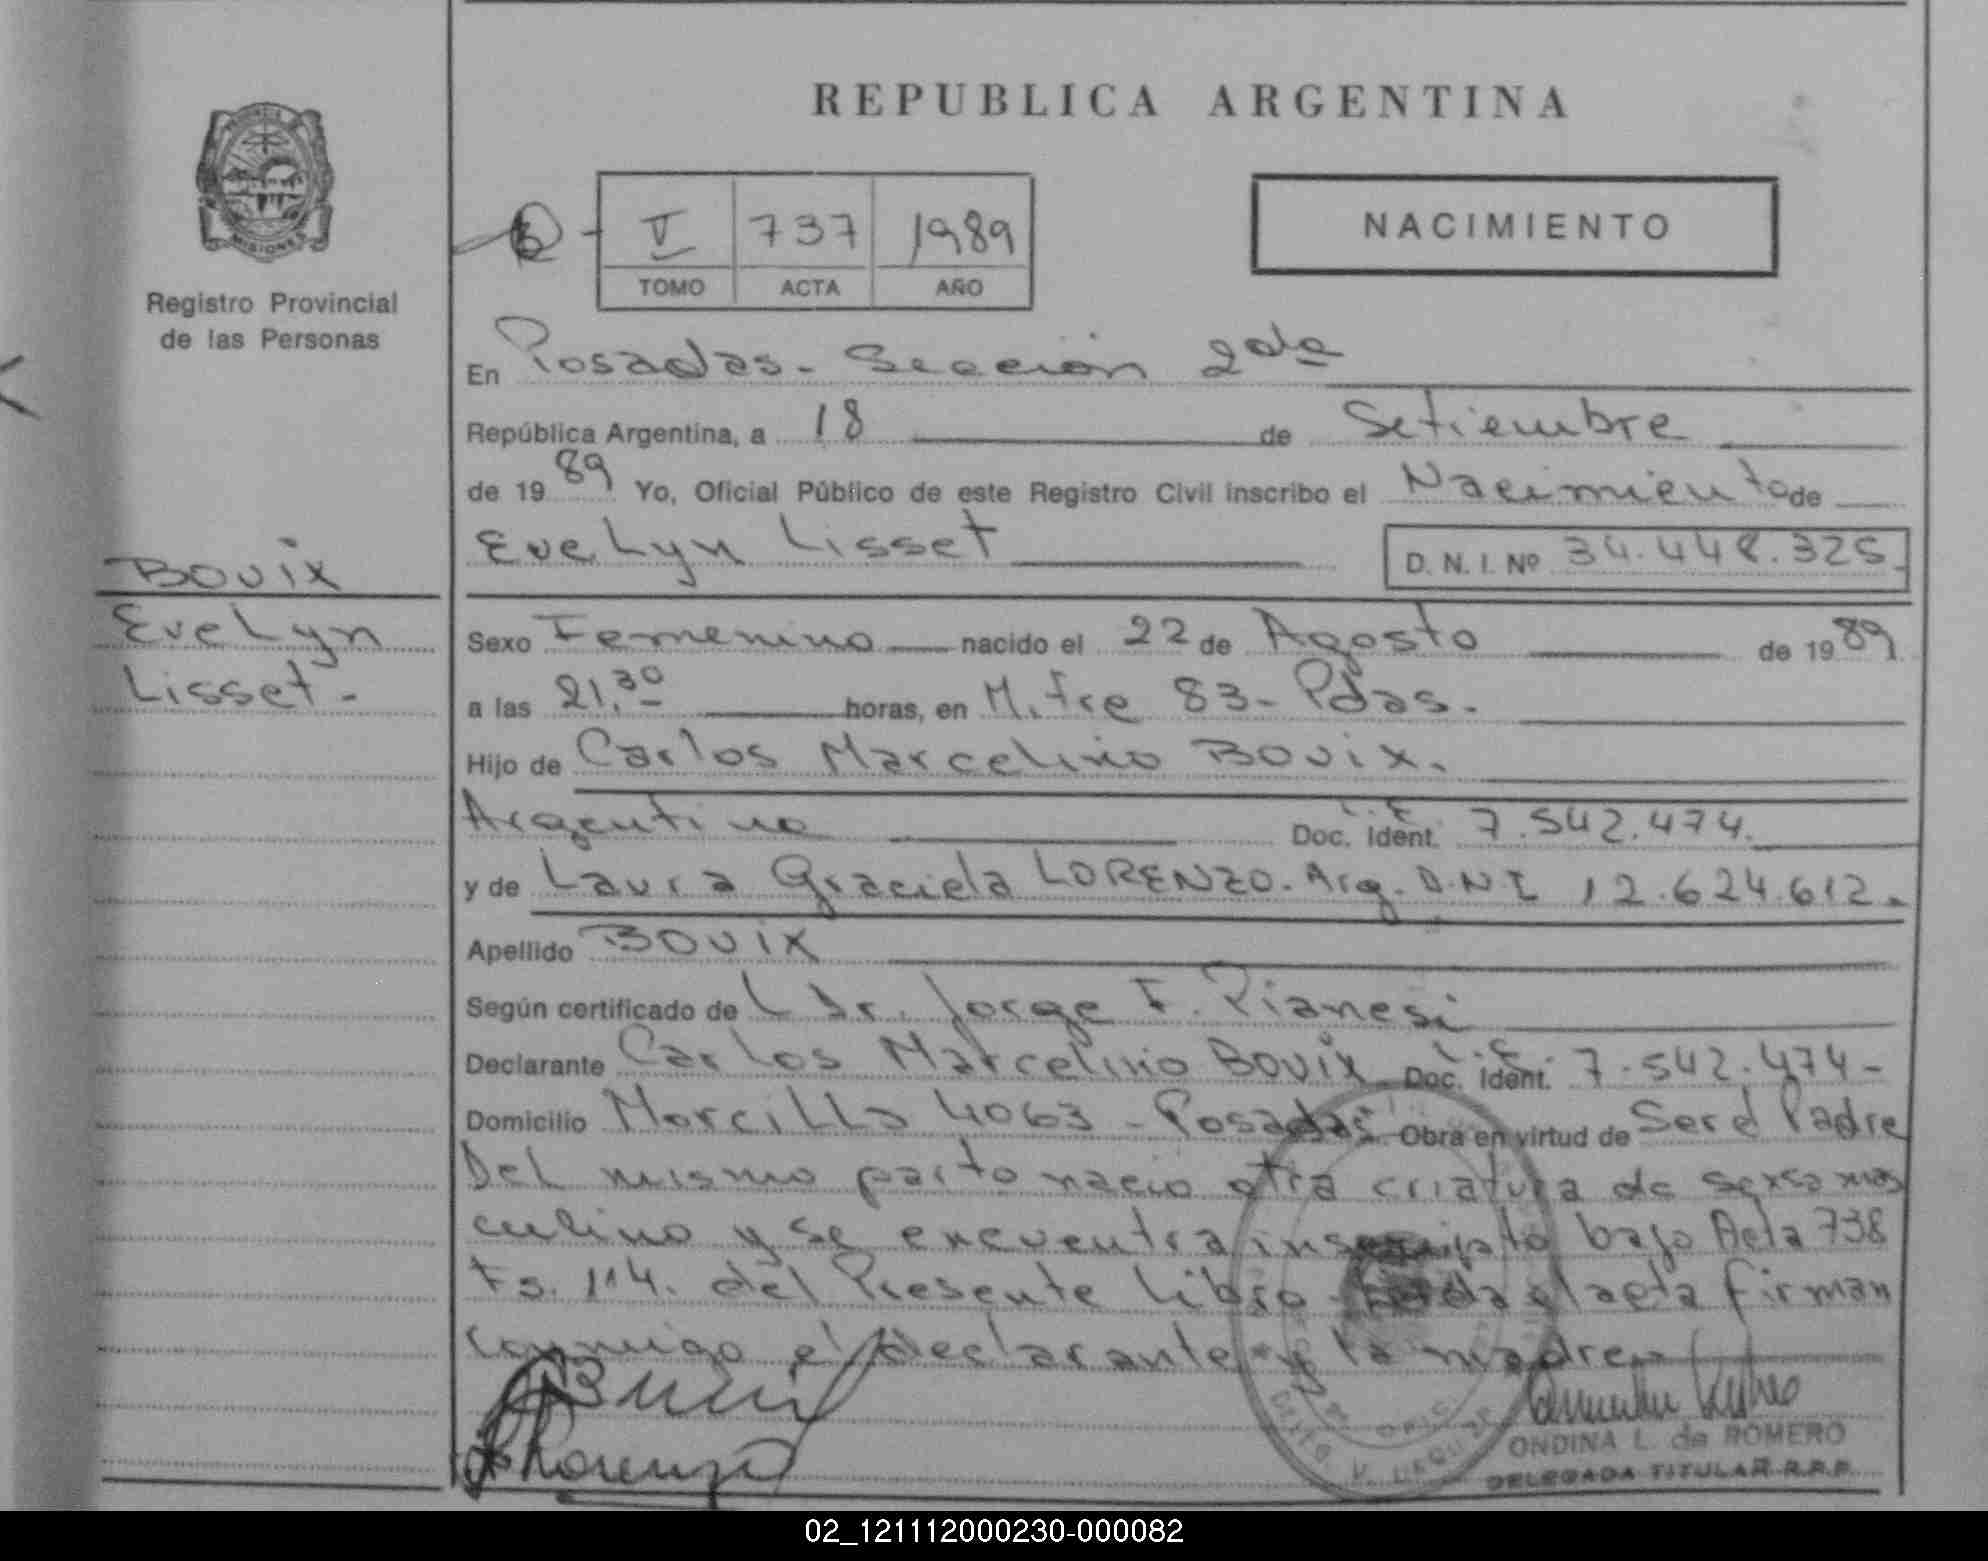 REPUBLICA ARGENTINA
MISIONES
Registro Provincial
de las Personas
V 737 1989
TOMO ACTA AÑO
NACIMIENTO
En Posadas. Sección 2da
República Argentina, a 18 de Setiembre
de 1989 Yo, Oficial Público de este Registro Civil inscribo el Nacimiento de
Evelyn Lisset D. N. I. Nº 34.448.325.
Bovix
Evelyn
Lisset -
Sexo Femenino nacido el 22 de Agosto de 1989
a las 21,30 horas, en Mitre 83 - Pdas.
Hijo de Carlos Marcelino Bovix.
Argentino Doc. Ident. L.E 7.542.474.
y de Laura Graciela LORENZO. Arg. D.N.I 12.624.612.
Apellido BOVIX
Según certificado de L Dr. Jorge F. Pianesi
Declarante Carlos Marcelino Bovix Doc. Ident. L.E. 7.542.474-
Domicilio Morcillo 4063 - Posadas Obra en virtud de Ser el Padre
Del mismo parto nacio otra criatura de sexo mas
culino y se encuentra inscripto bajo Acta 738
Fs. 114. del Presente libro el acta firman
conmigo el declarante y la madre
ONDINA L. de ROMERO
DELEGADA TITULAR R.P.P.
02_121112000230-000082